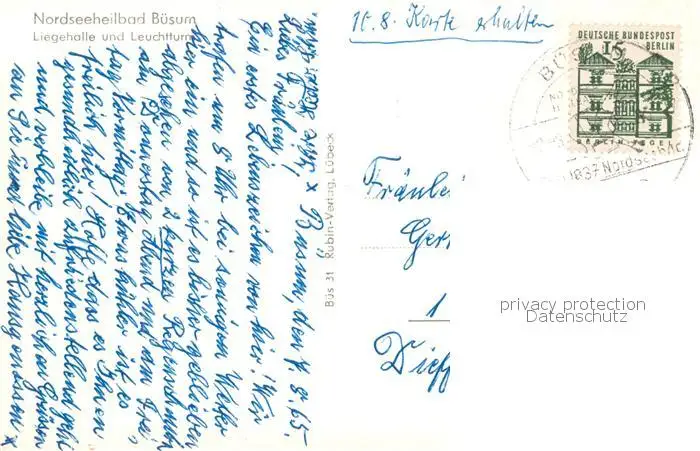 Nordseeheilbad Büsum
Liegehalle und Leuchtturm
10. 8. Karte erhalten
DEUTSCHE BUNDESPOST
BERLIN
15
BERLIN TEGEL
BÜS
1837 Nordseeb
Büs 31 Rubin-Verlag, Lübeck
x Büsum, den 7. 8. 65.
Liebes
Ein erstes Lebenszeichen von hier! Wir
trafen um 8 Uhr bei sonnigem Wetter
hier ein und so ist es bisher geblieben
abgesehen von 2 kurzen Regenschauern
am Donnerstag Abend und am Frei-
tag Vormittag! Etwas kühler ist es
freilich hier! Hoffe, dass es Ihnen
gesundheitlich zufriedenstellend geht
und verbleibe mit herzlichen Grüssen
an Sie Ihre
Fräulei
Ger
1
Dieff
privacy protection
Datenschutz